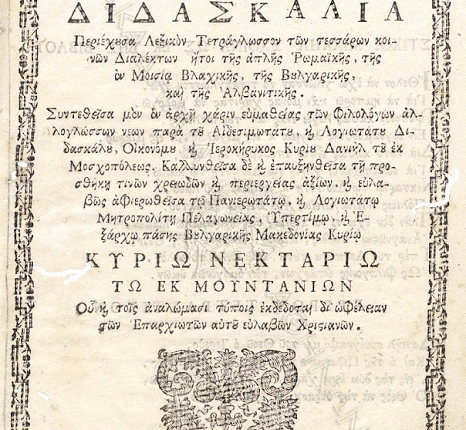 ΔΙΔΑΣΚΑΛΙΑ
Περιέχουσα Λεξικὸν Τετράγλωσσον τῶν τεσσάρων κοι-
νῶν Διαλέκτων ἤτοι τῆς ἁπλῆς Ῥωμαϊκῆς, τῆς
ἐν Μοισίᾳ Βλαχικῆς, τῆς Βȣλγαρικῆς,
καὶ τῆς Ἀλβανιτικῆς.
Συντεθεῖσα μὲν ἐν ἀρχῇ χάριν εὐμαθείας τῶν Φιλολόγων ἀλ-
λογλώσσων νέων παρὰ τȣ͂ Αἰδεσιμωτάτȣ, ϗ Λογιωτάτȣ Δι-
δασκάλȣ, Οἰκονόμȣ ϗ Ἱεροκήρυκος Κυρίȣ Δανιὴλ τȣ͂ ἐκ
Μοσχοπόλεως, Καλλυνθεῖσα δὲ ϗ ἐπαυξηνθεῖσα τῇ προσ-
θήκῃ τινῶν χρειωδῶν ϗ περιεργείας ἀξίων, ϗ εὐλα-
βῶς ἀφιερωθεῖσα τῷ Πανιερωτάτῳ, ϗ Λογιωτάτῳ
Μητροπολίτῃ Πελαγωνείας, Ὑπερτίμῳ, ϗ Ἐ-
ξάρχῳ πάσης Βȣλγαρικῆς Μακεδονίας Κυρίῳ
ΚΥΡΙΩ ΝΕΚΤΑΡΙΩ
ΤΩ ΕΚ ΜΟΥΝΤΑΝΙΩΝ
Οὗ ϗ τοῖς ἀναλώμασι τύποις ἐκδέδοται δι᾽ ὠφέλειαν
τῶν Ἐπαρχιωτῶν αὐτȣ͂ εὐλαβῶν Χριστιανῶν.